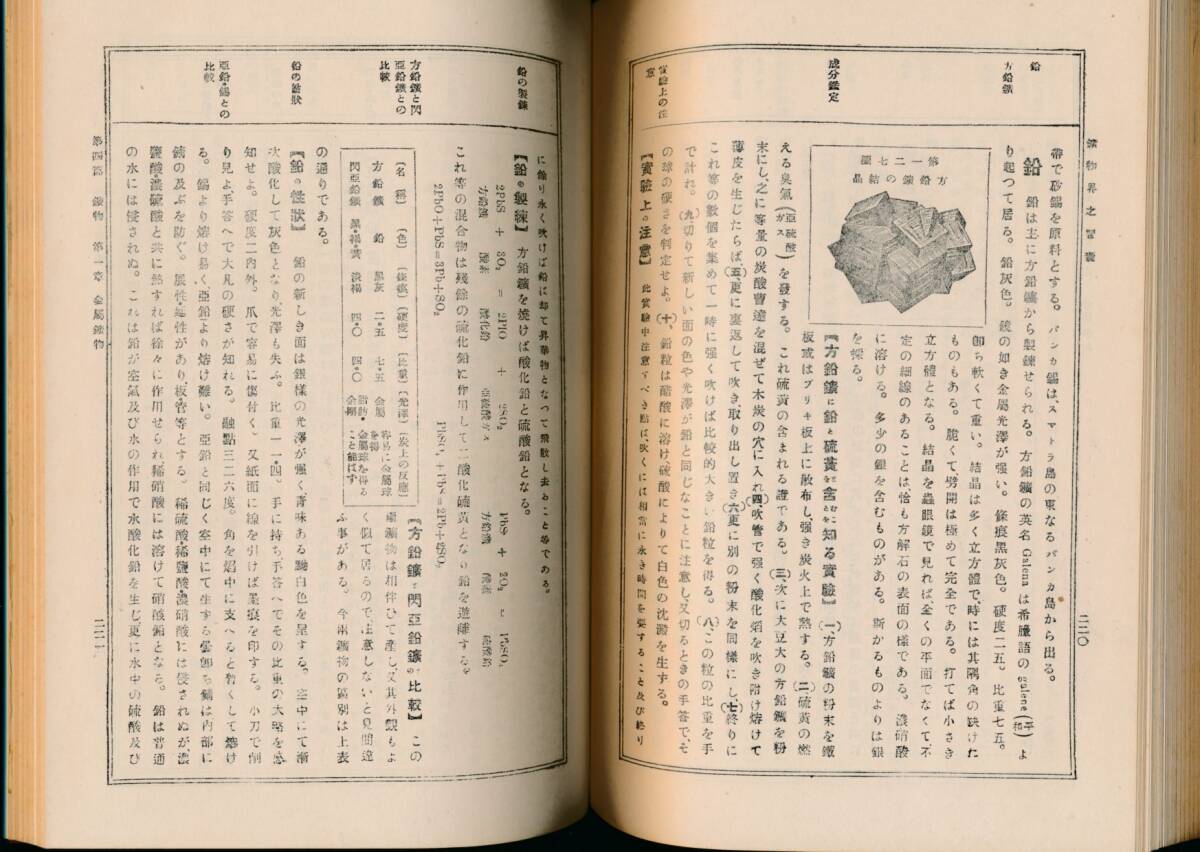 鑛物界之智囊
二二〇
鉛
方鉛鑛
成分鑑定
實驗上の注意
帶で砂錫を原料とする。バンカ錫は、スマトラ島の東なるバンカ島から出る。
鉛　鉛は主に方鉛鑛から製錬せられる。方鉛鑛の英名 Galena は希臘語の galene (平和) よ
り起つて居る。鉛灰色。鏡の如き金屬光澤が强い。條痕黑灰色。硬度二五。比重七五。
卽ち軟くて重い。結晶は多く立方體で、時には其隅角の缺けた
ものもある。脆くて劈開は極めて完全である。打てば小さき
立方體となる。結晶を蟲眼鏡で見れば全くの平面でなくて不
定の細線のあることは恰も方解石の表面の樣である。濃硝酸
に溶ける。多少の銀を含むものがある。斯かるものよりは銀
を採る。
第一二七圖
方鉛鑛の結晶
『方鉛鑛に鉛と硫黃を含むことを知る實驗』 (一)方鉛鑛の粉末を鐵
板或はブリキ板上に散布し强き炭火上で熱する。(二)硫黃の燃
える臭氣(亞硫酸ガス)を發する。これ硫黃の含まれる證である。(三)次に大豆大の方鉛鑛を粉
末にし、之に等量の炭酸曹達を混ぜて木炭の穴に入れ(四)吹管で强く酸化焰を吹き附け熔けて
薄皮を生じたらば、(五)更に裏返して吹き、取り出し置き(六)更に別の粉末を同樣にし、(七)終りに
これ等の數個を集めて一時に强く吹けば比較的大きい鉛粒を得る。(八)この粒の比重を手
で計れ。(九)切りて新しい面の色や光澤が鉛と同じなことに注意し、又切るときの手答で、そ
の球の硬さを判定せよ。(十)鉛粒は醋酸に溶け硫酸によりて白色の沈澱を生ずる。
【實驗上の注意】 此實驗中注意すべき點は、吹くには相當に永き時間を要すること及び終り
第四篇　鑛物　第一章　金屬鑛物
二二一
鉛の製錬
方鉛鑛と閃亞鉛鑛との比較
鉛の性狀
亞鉛・錫との比較
に餘り永く吹けば鉛に却て昇華物となつて飛散し去ること等である。
【鉛の製煉】 方鉛鑛を燒けば酸化鉛と硫酸鉛となる。
2PbS + 3O₂ = 2PbO + 2SO₂
方鉛鑛　酸素　酸化鉛　亞硫酸ガス
PbS + 2O₂ = PbSO₄
方鉛鑛　酸素　硫酸鉛
これ等の混合物は殘餘の硫化鉛に作用して二酸化硫黃となり鉛を遊離する。
2PbO+PbS=3Pb+SO₂
PbSO₄+PbS=2Pb+2SO₂
『方鉛鑛と閃亞鉛鑛の比較』 この
兩鑛物は相伴ひて產し、又其外觀もよ
く似て居るので、注意しないと見間違
ふ事がある。今兩鑛物の區別は上表
(名稱) (色) (條痕) (硬度) (比重) (光澤) (炭上の反應)
方鉛鑛　鉛　黑灰　二・五　七・五　金屬　容易に金屬球を得
閃亞鉛鑛　黑・褐・黃　淡褐　四・〇　四・〇　脂肪・金剛　金屬球を得ること能はず
の通りである。
『鉛の性狀』 鉛の新しき面は銀樣の光澤が强く靑味ある白色を呈する。空中にて漸
次酸化して灰色となり、光澤も失ふ。比重一一・四。手に持ち、手答へでその比重の大略を感
知せよ。硬度二內外。爪で容易に傷付く。又紙面に線を引けば墨痕を印する。小刀で削
り見よ、手答へで大凡の硬さが知れる。融點三二六度。角を焰中に支へると暫くして熔け
る。錫より熔け易く、亞鉛より熔け難い。亞鉛と同じく空中にて生ずる錆は內部に
錆の及ぶを防ぐ。展性・延性があり、板・管等とする。稀硫酸・稀鹽酸・濃硝酸には侵されぬが、濃
鹽酸・濃硫酸と共に熱すれば徐々に作用せられ稀硝酸には溶けて硝酸鉛となる。鉛は普通
の水には侵されぬ。これは鉛が空氣及び水の作用で水酸化鉛を生じ更に水中の硫酸及び